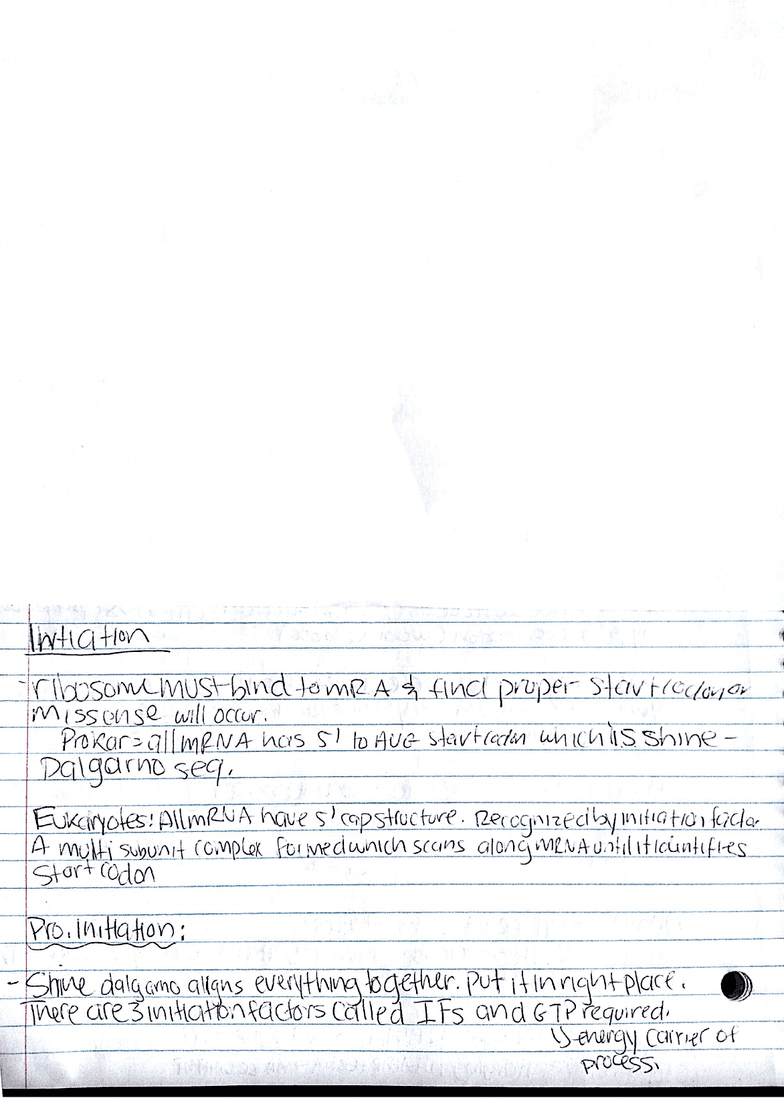 Initiation
- ribosome must bind to mR A & find proper start codon or
missense will occur.
Prokar = all mRNA has 5' to AUG start codon which is Shine -
Dalgarno seq.
Eukaryotes: All mRNA have 5' cap structure. Recognized by initiation factor
A multi subunit complex formed which scans along mRNA until it identifies
Start codon
Pro. initiation:
- Shine dalgarno aligns everything together. Put it in right place.
There are 3 initiation factors called IFs and GTP required.
↳ energy carrier of
process.